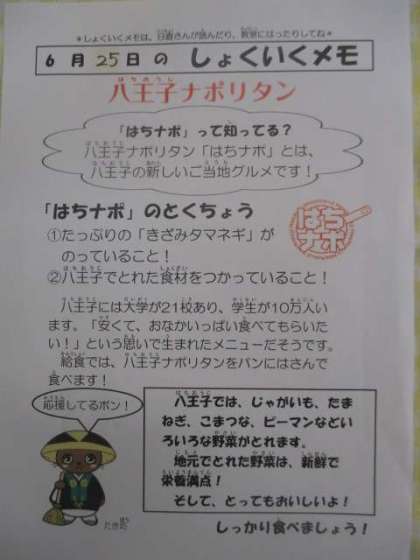 ＊しょくいくメモは、日直さんが読んだり、教室にはったりしてね＊
6月25日の しょくいくメモ
八王子ナポリタン
「はちナポ」って知ってる？
八王子ナポリタン「はちナポ」とは、
八王子の新しいご当地グルメです！
「はちナポ」のとくちょう
①たっぷりの「きざみタマネギ」が
のっていること！
②八王子でとれた食材をつかっていること！
はち
ナポ
八王子には大学が21校あり、学生が10万人い
ます。「安くて、おなかいっぱい食べてもらいた
い！」という思いで生まれたメニューだそうです。
給食では、八王子ナポリタンをパンにはさんで
食べます！
応援してるポン！
八王子では、じゃがいも、たま
ねぎ、こまつな、ピーマンなどい
ろいろな野菜がとれます。
地元でとれた野菜は、新鮮で
栄養満点！
そして、とってもおいしいよ！
しっかり食べましょう！